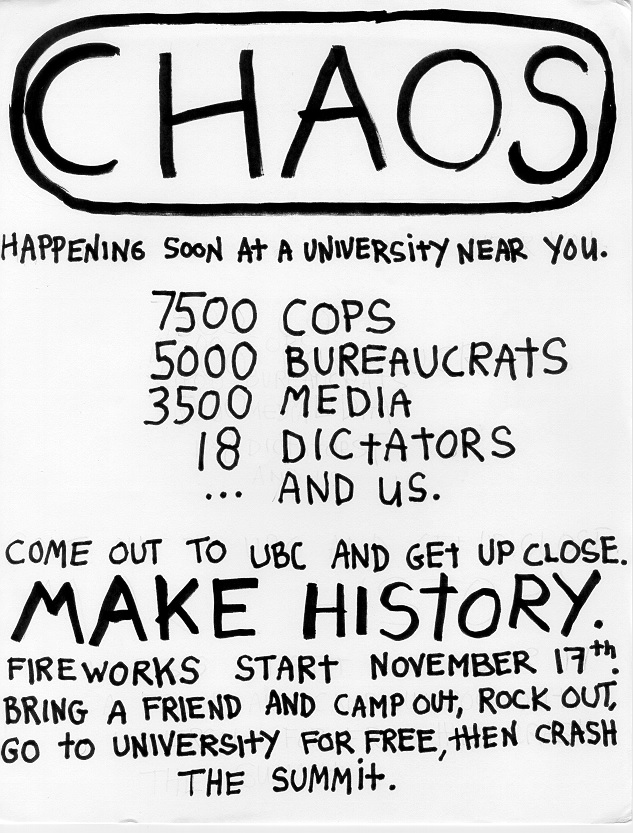 CHAOS
HAPPENING SOON At A UNIVERSitY NEAR YOU.
7500 COPS
5000 BUREAUCRAtS
3500 MEDIA
18 DICtAtORS
... AND US.
COME OUT TO UBC AND GEt UP CLOSE.
MAKE HIStORY.
FIREWORKS START NOVEMBER 17th.
BRING A FRIEND AND CAMP OUt, ROCK OUT,
GO to UNIVERSItY FOR FREE, tHEN CRASH
THE SUMMit.